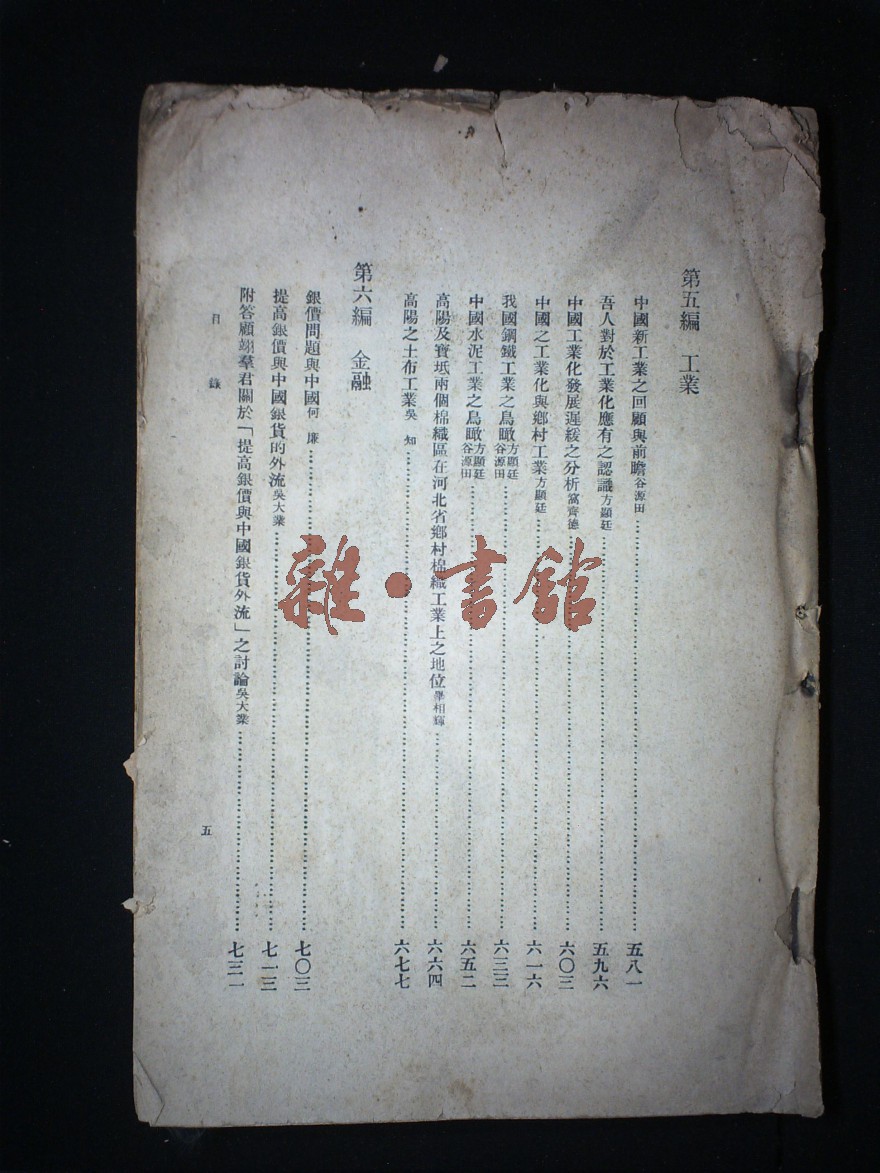 第五編 工業
中國新工業之回顧與前瞻谷源田……五八一
吾人對於工業化應有之認識方顯廷……五九六
中國工業化發展遲緩之分析富齊德……六〇三
中國之工業化與鄉村工業方顯廷……六一六
我國鋼鐵工業之鳥瞰方顯廷谷源田……六三三
中國水泥工業之鳥瞰方顯廷谷源田……六五二
高陽及寶坻兩個棉織區在河北省鄉村棉織工業上之地位畢相輝……六六四
高陽之土布工業吳知……六七七
第六編 金融
銀價問題與中國何廉……七〇三
提高銀價與中國銀貨的外流吳大業……七一三
附答顧翊羣君關於「提高銀價與中國銀貨外流」之討論吳大業……七三一
目錄 五
雜·書館